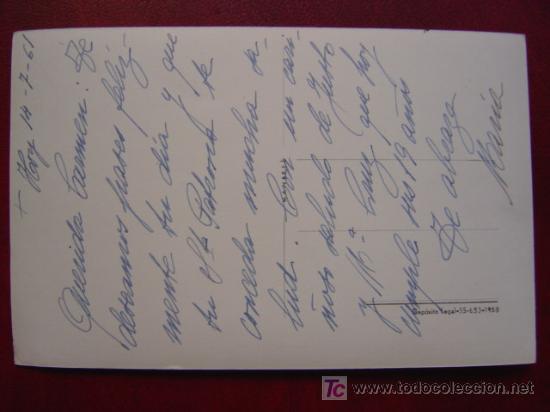 +
Hoy 14-7-61
Querida Carmen: Te
deseamos pases feliz-
mente tu día y que
tu Sta Patrona te
conceda mucha sa-
lud. Con un cari-
ñoso saludo de Justo
y Mª Cruz que hoy
cumple sus 19 años
Te abraza
María
Depósito Legal-SS-653-1958
TC www.todocoleccion.net